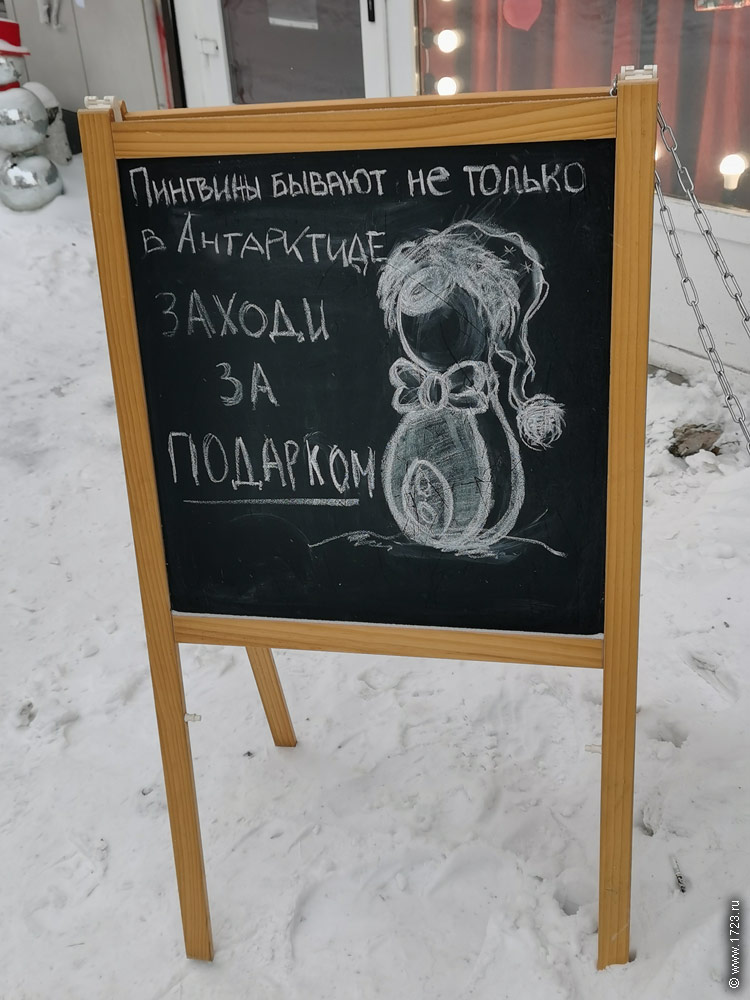 Пингвины бывают не только
в Антарктиде
ЗАХОДИ
ЗА
ПОДАРКОМ
© www.1723.ru